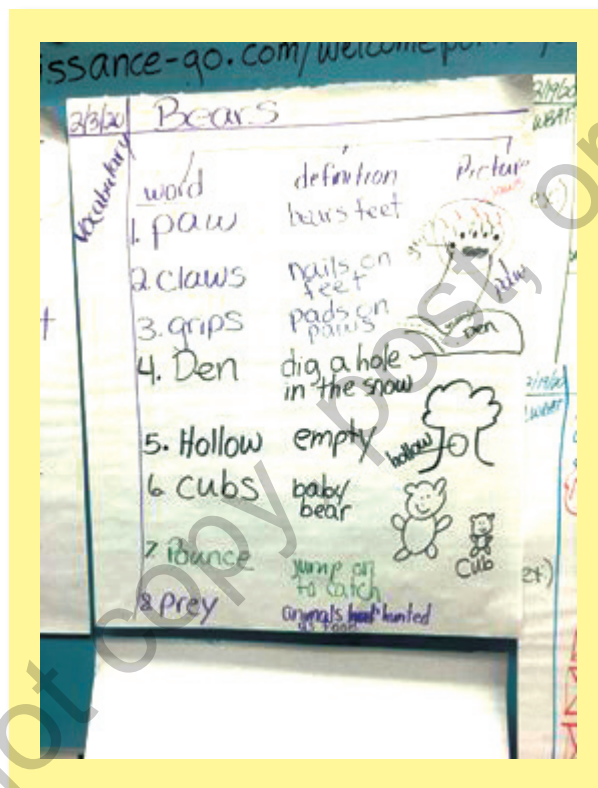 issance-go.com/welcome
2/3/20 Bears
Vocabulary
word definition Picture
1. paw bears feet
2. claws nails on
feet
3. grips pads on
paws
4. Den dig a hole
in the snow
Den
5. Hollow empty
hollow
6 cubs baby
bear
Cub
7. Pounce jump on
to catch
8. prey animals hunted
as food
2/19/20
WBAT
2/19/20
not copy, post, or